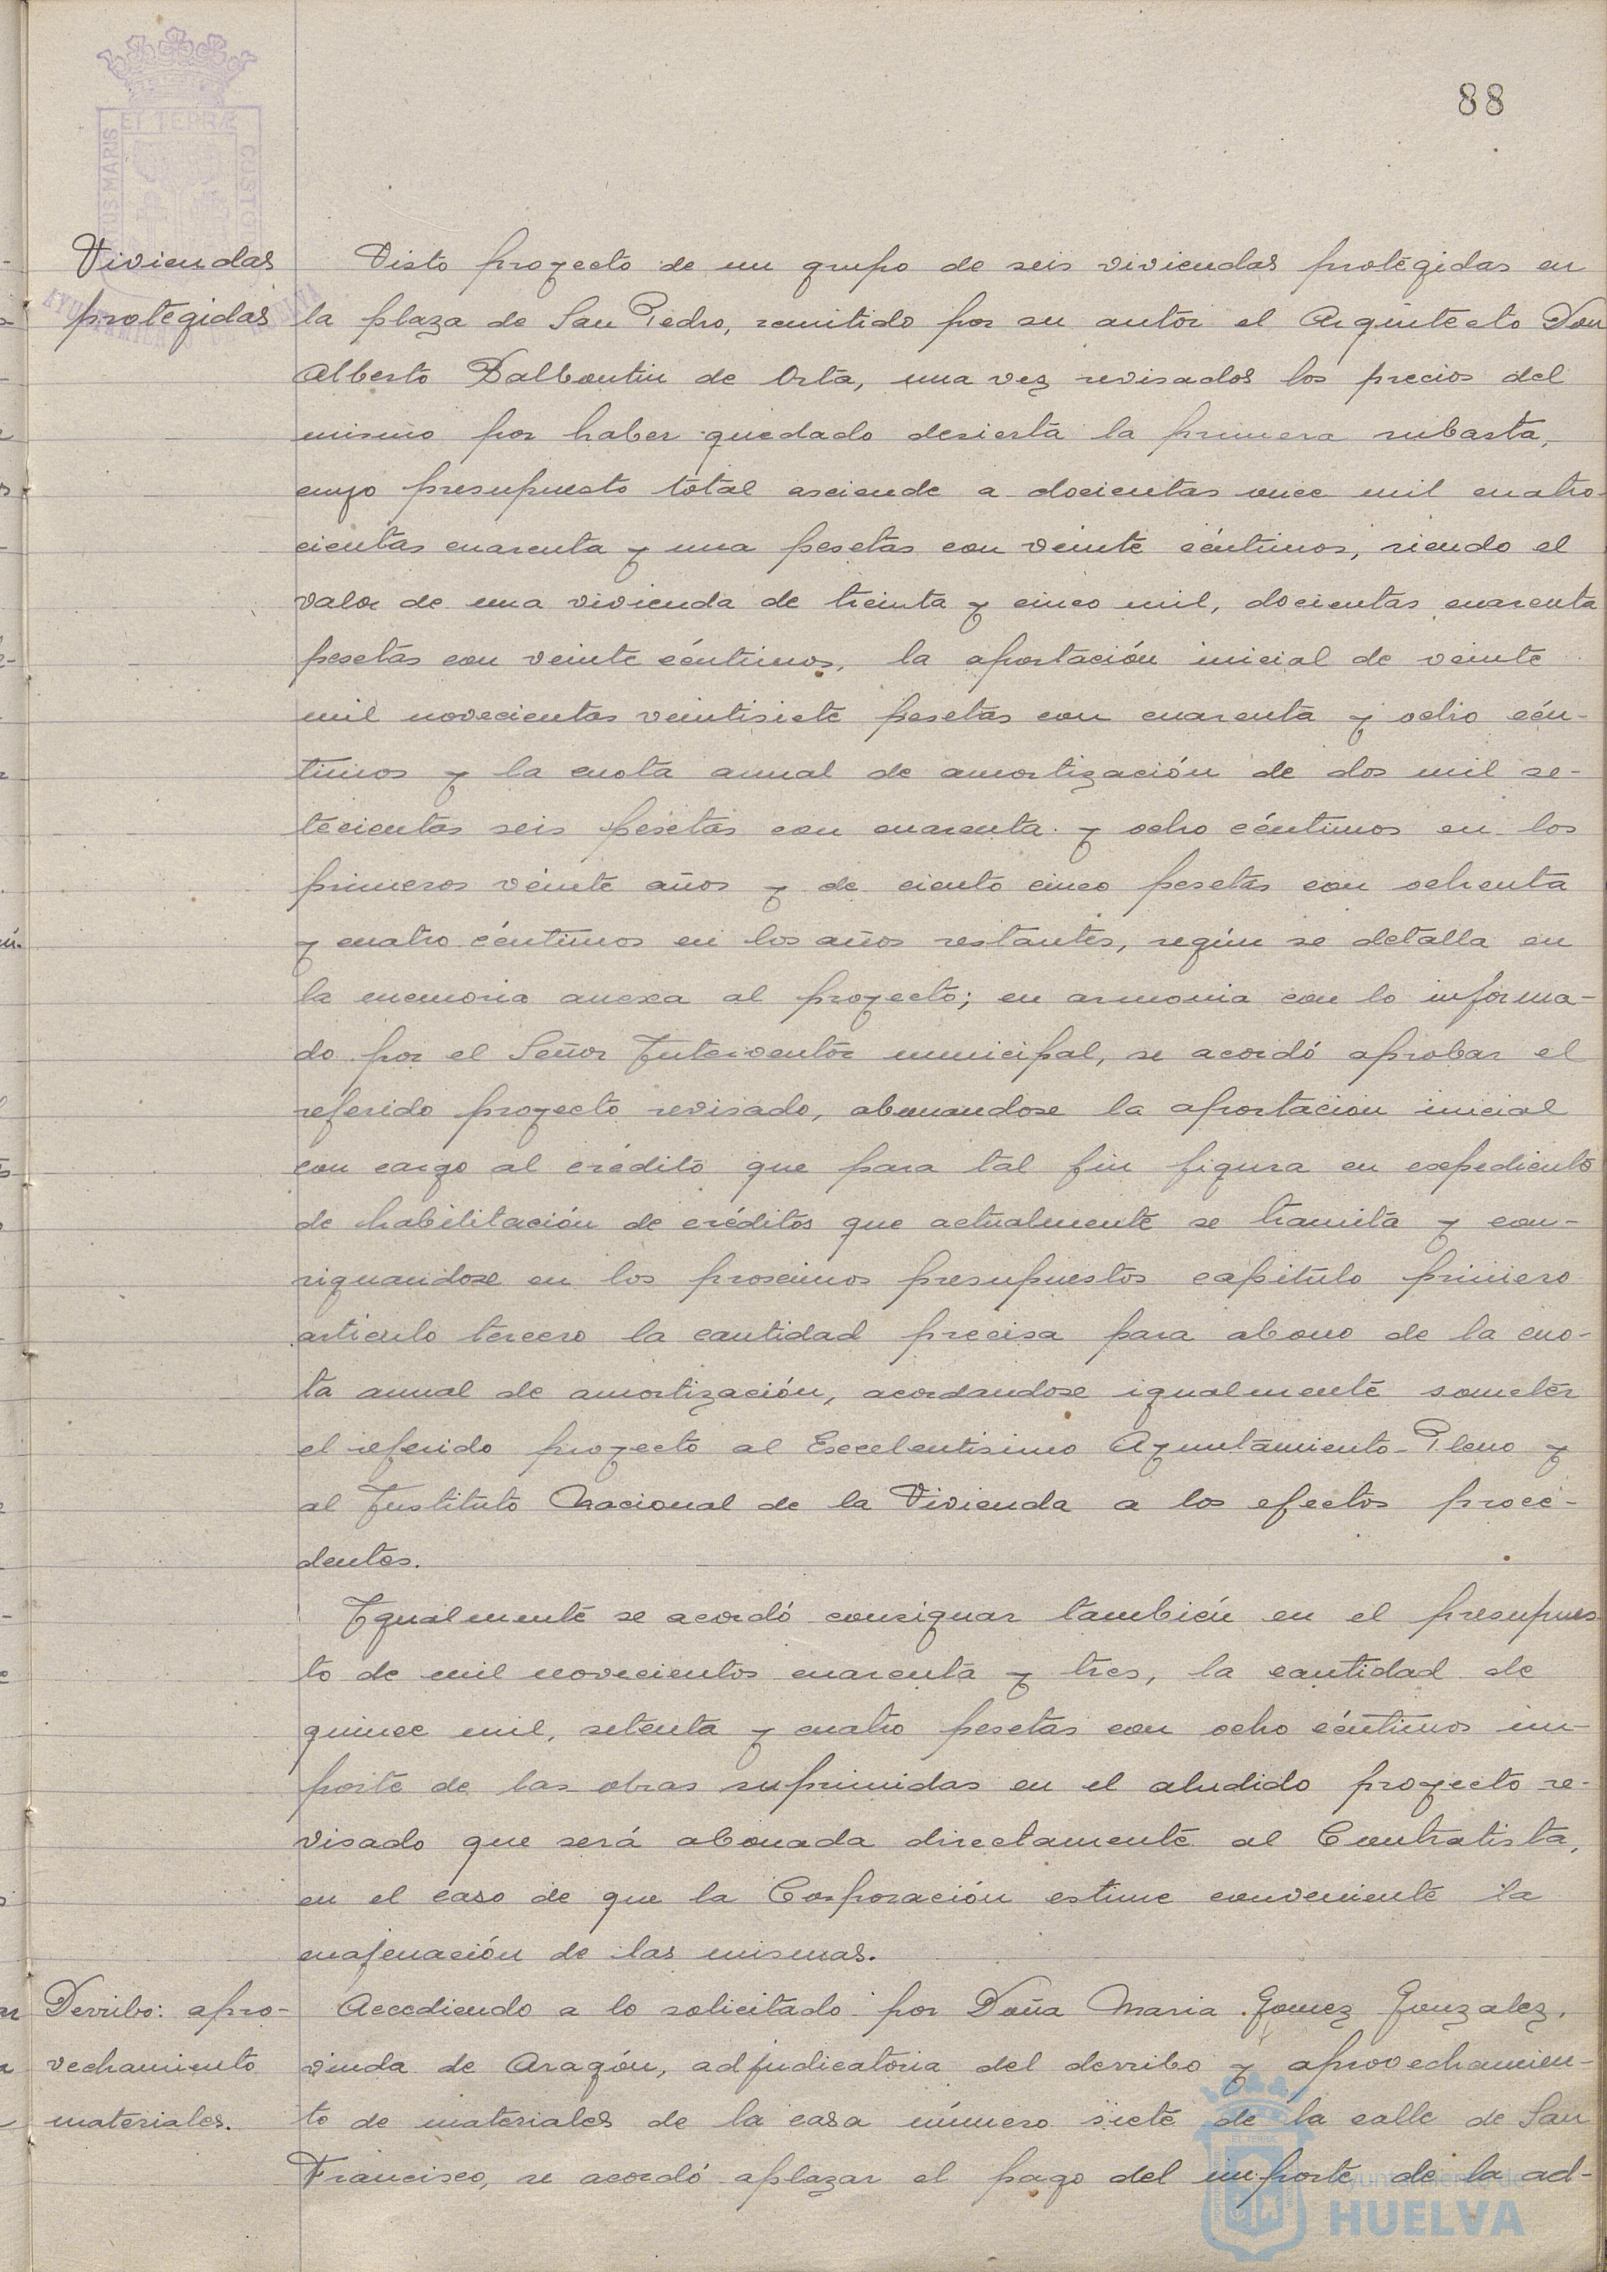 88
Viviendas
protegidas
Visto proyecto de un grupo de seis viviendas protegidas en
la plaza de San Pedro, remitido por su autor el Arquitecto Don
Alberto Balbontin de Orta, una vez revisados los precios del
mismo por haber quedado desierta la primera subasta,
cuyo presupuesto total asciende a docientas once mil cuatro-
cientas cuarenta y una pesetas con veinte céntimos, siendo el
valor de una vivienda de treinta y cinco mil, docientas cuarenta
pesetas con veinte céntimos, la aportación inicial de veinte
mil novecientas veintisiete pesetas con cuarenta y ocho cén-
timos y la cuota anual de amortización de dos mil se-
tecientas seis pesetas con cuarenta y ocho céntimos en los
primeros veinte años y de ciento cinco pesetas con ochenta
y cuatro céntimos en los años restantes, según se detalla en
la memoria anexa al proyecto; en armonia con lo informa-
do por el Señor Interventor municipal, se acordó aprobar el
referido proyecto revisado, abonandose la aportacion inicial
con cargo al crédito que para tal fin figura en expediente
de habilitación de créditos que actualmente se tramita y con-
signandose en los proximos presupuestos capitulo primero
articulo tercero la cantidad precisa para abono de la cuo-
ta anual de amortización, acordandose igualmente someter
el referido proyecto al Excelentisimo Ayuntamiento-Pleno y
al Instituto Nacional de la Vivienda a los efectos proce-
dentes.
Igualmente se acordó consignar también en el presupues-
to de mil novecientos cuarenta y tres, la cantidad de
quince mil, setenta y cuatro pesetas con ocho céntimos im-
porte de las obras suprimidas en el aludido proyecto re-
visado que será abonada directamente al Contratista,
en el caso de que la Corporación estime conveniente la
enajenación de las mismas.
Derribo: apro-
vechamiento
materiales.
Accediendo a lo solicitado por Doña Maria Gomez Gonzalez,
viuda de Aragón, adjudicatoria del derribo y aprovechamien-
to de materiales de la casa número siete de la calle de San
Francisco, se acordó aplazar el pago del importe de la ad-
ET TERRÆ
MARIS
CUSTO
Ayuntamiento de
HUELVA